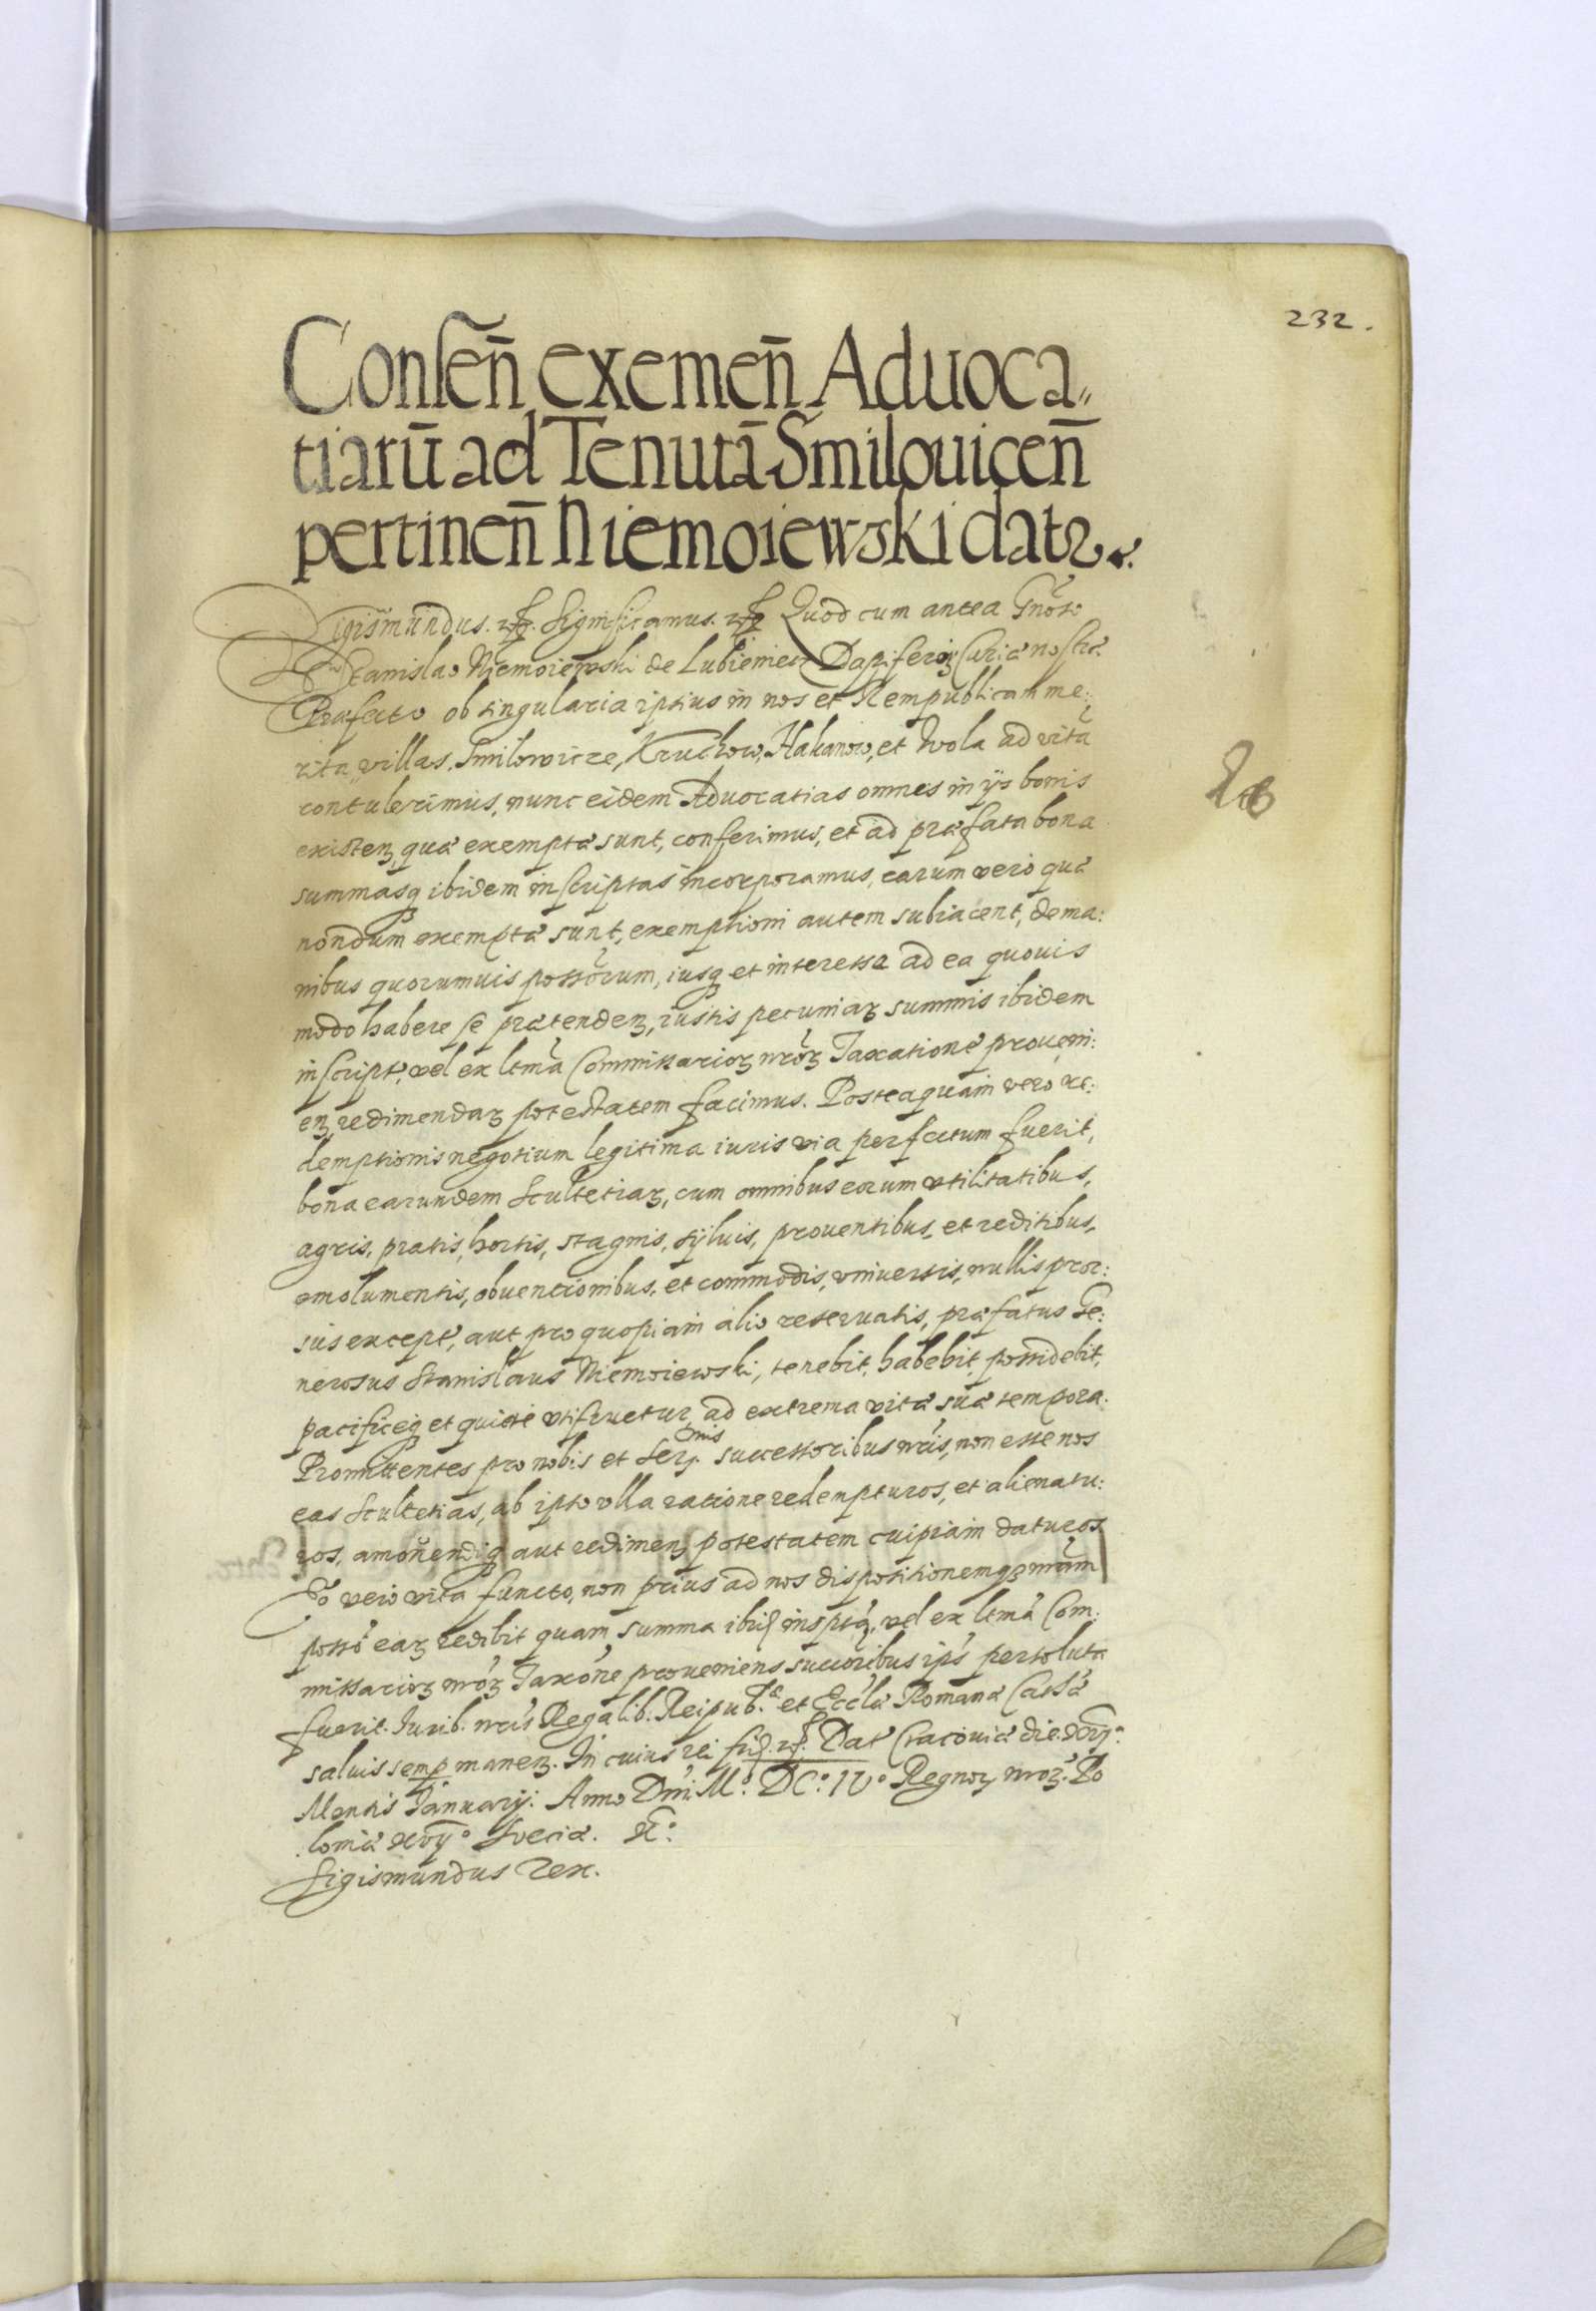 232.
Consen̄ exemen̄ Aduoca„
tiarū ad Tenutā Smilouicen̄
pertinen̄ Niemoiewski datꝛ.
Sigismundus. etc. Significamus. etc. Quod cum antea Gnoso
Stanislao Niemoiewski de Lubieniecz Dapiferoꝝ Curiæ nostræ
Præfecto ob singularia ipsius in nos et Rempublicam me:
rita, villas, Smilowicze, Kruchow, Hakanow, et Wola ad vitā
contulerimus, nunc eidem Aduocatias omnes in ijs bonis
existenꝫ, quæ exemptæ sunt, conferimus, et ad præfata bona
summasqꝫ ibidem inscriptas incorporamus, earum vero quæ
nondum exemptæ sunt, exemptioni autem subiacent, de ma:
nibus quorumuis possorum, iusqꝫ et interesse ad ea quouis
modo habere se prætendenꝫ, iustis pecuniarꝫ summis ibidem
inscript, vel ex ltmā Commissarioꝝ nroꝝ Taxatione proueni:
enꝫ, redimendarꝫ potestatem facimus. Posteaquam vero re:
demptionis negotium legitima iuris via perfectum fuerit,
bona earundem Scultetiarꝫ, cum omnibus eorum vtilitatibus,
agris, pratis, hortis, stagnis, syluis, prouentibus, et reditibus,
emolumentis, obuentionibus, et commodis, vniuersis, nullis pror:
sus except, aut pro quopiam alio reseruatis, præfatus Ge:
nerosus Stanislaus Niemoiewski, tenebit, habebit, possidebit,
pacificeqꝫ et quiete vtifruetur, ad extrema vitæ suæ tempora.
Promittentes pro nobis et Serꝫ.mis successoribus nris, non esse nos
eas Scultetias, ab ipso vlla ratione redempturos, et alienatu:
ros, amouendiqꝫ aut redimenꝫ potestatem cuipiam daturos
Eo vero vita functo, non prius ad nos dispositionemqꝫ nram
posso earꝫ redibit quam summa ibid insptā, vel ex ltmā Com:
missarioꝝ nroꝝ Taxone proueniens succoribus ips persoluta
fuerit. Iurib. nris Regalib. Reipub.æ et Eccłæ Romanæ Cathæ
saluis semp manenꝫ. In cuius rei fid. etc. Dat Cracouiæ die xvij.a
Mensis Ianuarij. Anno Dni. Mo. DCo. IVo Regnoꝝ nroꝝ. Po
loniæ xvijo Sueciæ. xo.
Sigismundus Rex.